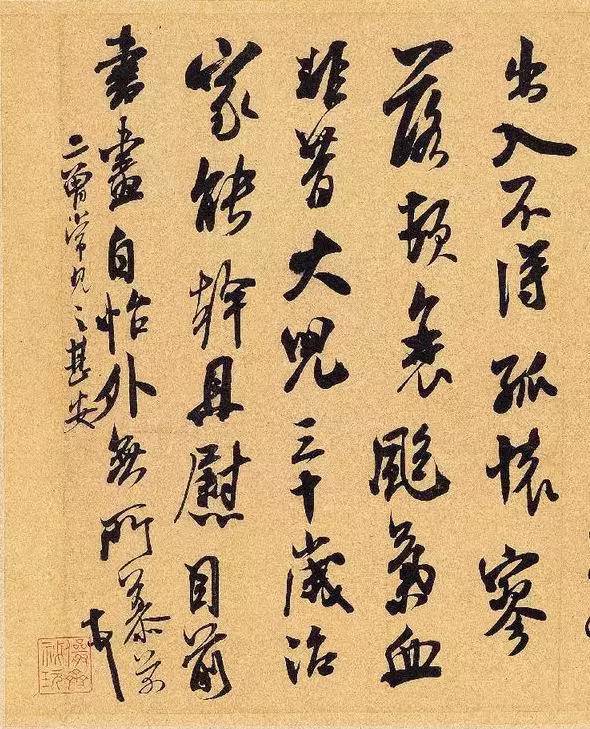 出入不得孤懷寥
落頓衰颯氣血
非昔大兒三十歲治
家能幹且慰目前
書畫自怡外無所慕芾
二曾常見之甚安